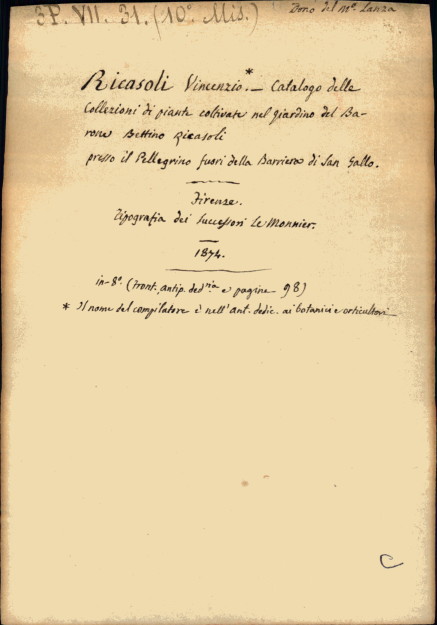 3P. VII. 31. (10° Mis.)
Dono del M.e Lanza
Ricasoli Vincenzio.* — Catalogo delle
Collezioni di piante coltivate nel giardino del Ba-
rone Bettino Ricasoli
presso il Pellegrino fuori della Barriera di San Gallo.
Firenze.
Tipografia dei Successori Le Monnier.
1874.
in-8.° (front. antip. ded.ria e pagine 98)
* Il nome del compilatore è nell'ant. dedic. ai botanici e orticultori
C